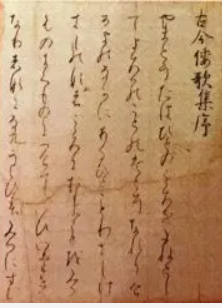 古今倭歌集序
やまとうたはひとのこゝろをたねとし
てよろつのことのはとそなれりけ
るよのなかにあるひとことわさしけ
きものなれはこゝろにおもふことをみ
るものきくものにつけていひいたせる
なりはなになくうくひすみつにす